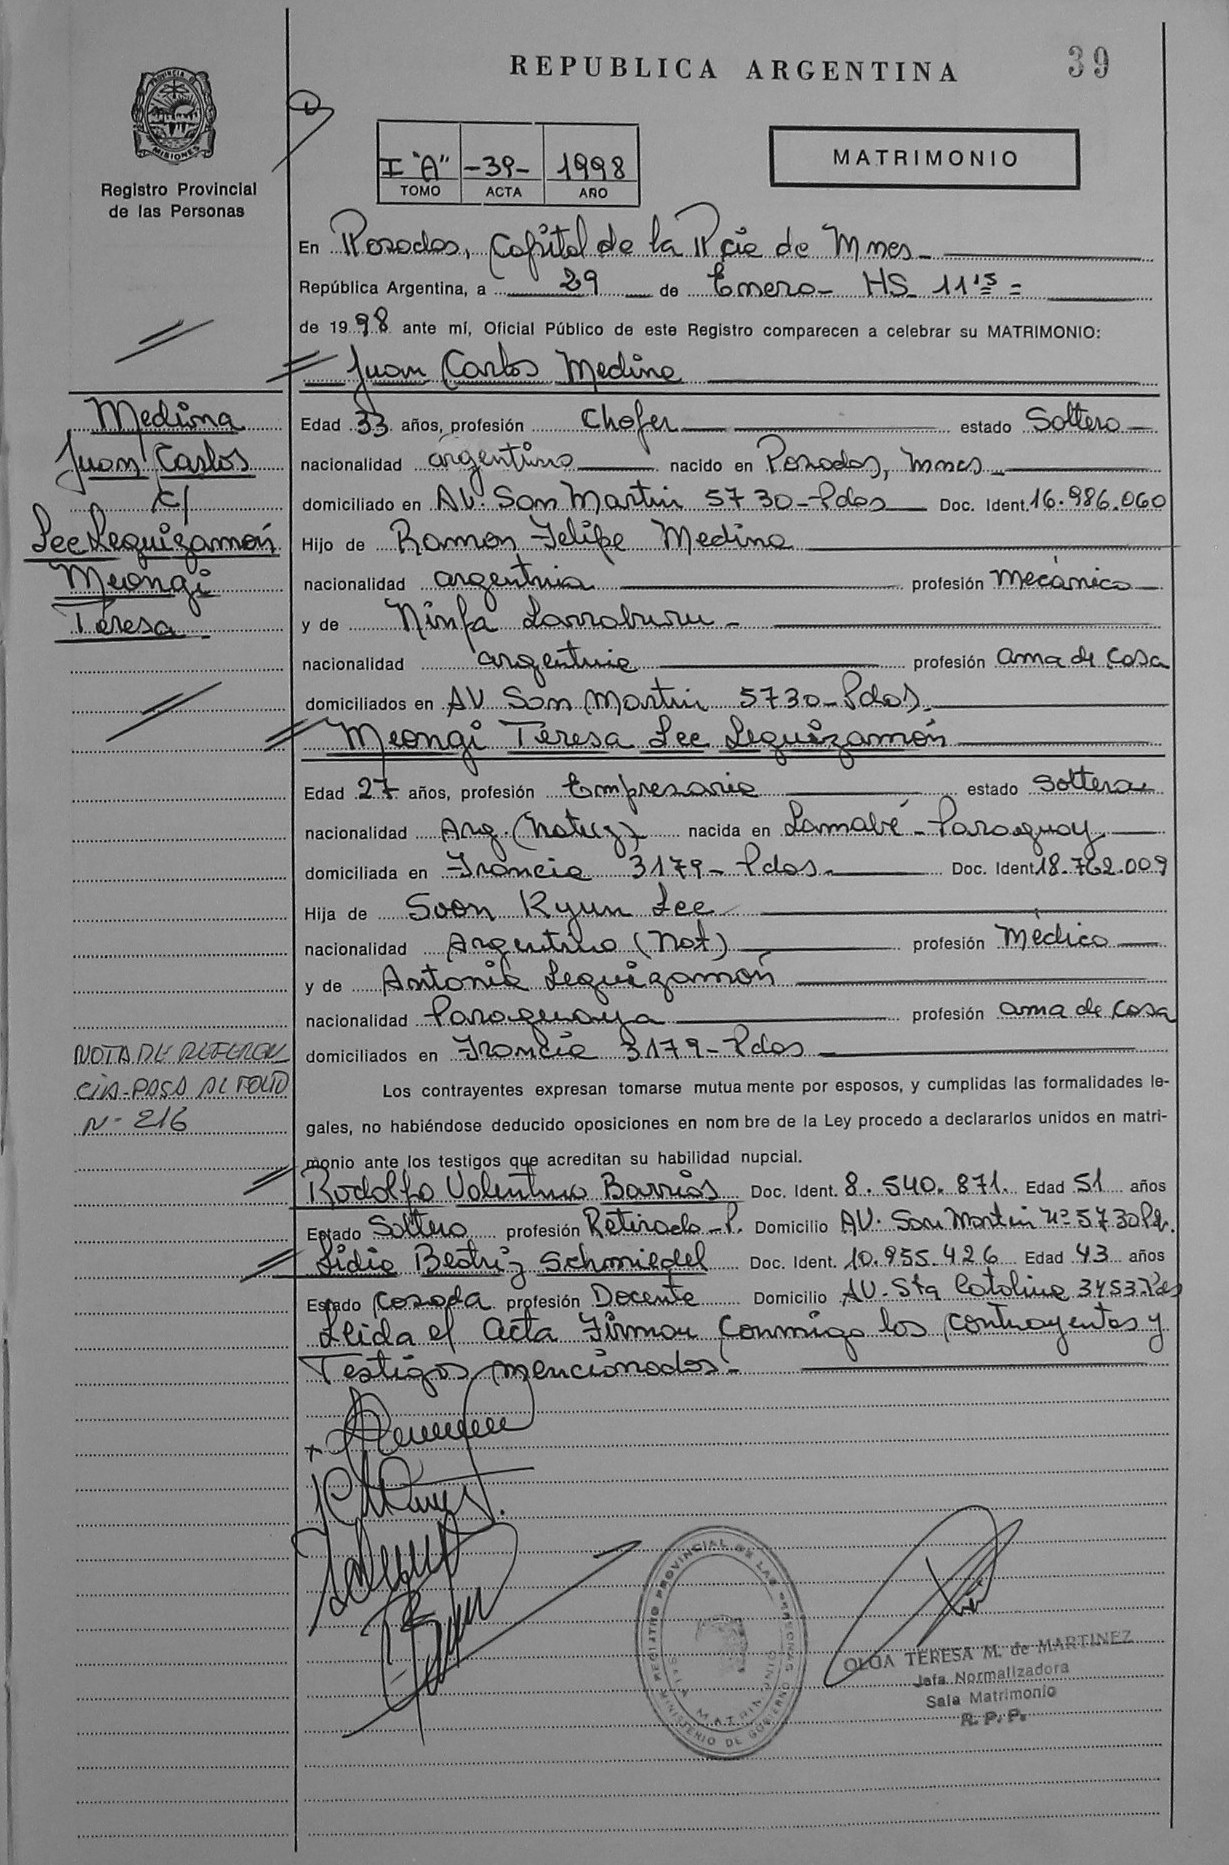 REPUBLICA ARGENTINA
39
PROVINCIA DE MISIONES
Registro Provincial
de las Personas
I "A" -39- 1998
TOMO ACTA AÑO
MATRIMONIO
En Posadas, Capital de la Pcia de Mnes
República Argentina, a 29 de Enero - HS 11'15 =
de 1998 ante mí, Oficial Público de este Registro comparecen a celebrar su MATRIMONIO:
Juan Carlos Medina
Medina
Juan Carlos
c/
Lee Leguizamón
Meongi
Teresa
Edad 33 años, profesión Chofer estado Soltero
nacionalidad argentino nacido en Posadas, Mnes
domiciliado en AV. San Martin 5730 - Pdas Doc. Ident. 16.986.060
Hijo de Ramon Felipe Medina
nacionalidad argentina profesión mecánico
y de Ninfa Larraburu -
nacionalidad argentina profesión ama de casa
domiciliados en AV San Martin 5730 - Pdas.
Meongi Teresa Lee Leguizamón
Edad 27 años, profesión Empresaria estado soltera
nacionalidad Arg. (Natuz) nacida en Lamabé - Paraguay
domiciliada en Francia 3179 - Pdas. Doc. Ident 18.762.009
Hija de Soon Kyun Lee
nacionalidad Argentino (Nat) profesión Médico
y de Antonia Leguizamón
nacionalidad Paraguaya profesión ama de casa
domiciliados en Francia 3179 - Pdas
NOTA DE REFEREN
CIA - PASA AL FOLIO
N- 216
Los contrayentes expresan tomarse mutua mente por esposos, y cumplidas las formalidades le-
gales, no habiéndose deducido oposiciones en nom bre de la Ley procedo a declararlos unidos en matri-
monio ante los testigos que acreditan su habilidad nupcial.
Rodolfo Valentino Barrios Doc. Ident. 8.540.871. Edad 51 años
Estado Soltero profesión Retirado - P. Domicilio AV. San Martin Nº 5730 Pds.
Lidia Beatriz Schmiedel Doc. Ident. 10.955.426 Edad 43 años
Estado casada profesión Docente Domicilio AV. Sta Catalina 3453 Pds
Leida el Acta Firman conmigo los contrayentes y
Testigos mencionados -
REGISTRO PROVINCIAL DE LAS PERSONAS
SALA MATRIMONIO
MINISTERIO DE GOBIERNO
OLGA TERESA M. de MARTINEZ
Jefa Normalizadora
Sala Matrimonio
R. P. P.